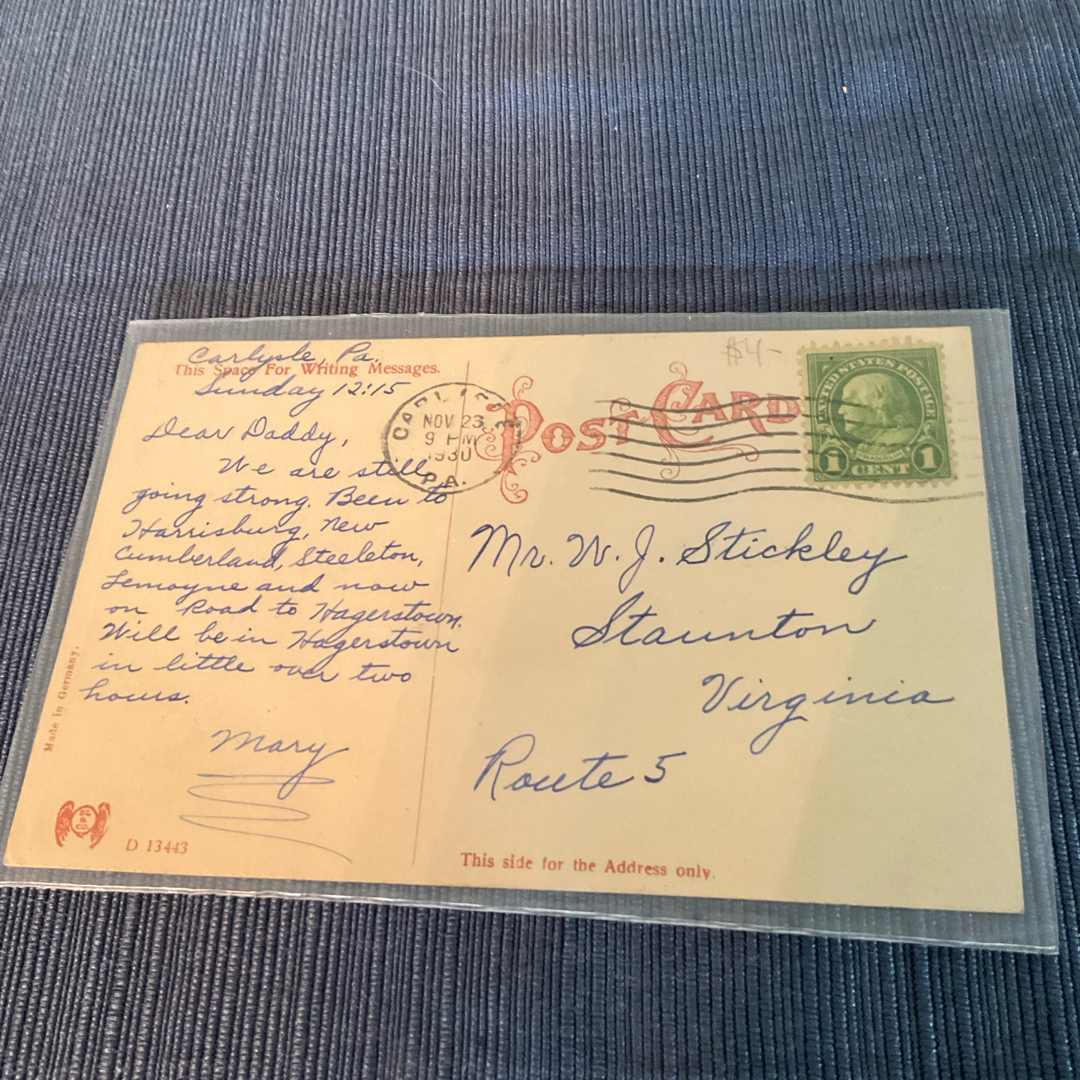 Carlysle, Pa.
This Space For Writing Messages.
Sunday 12:15
Dear Daddy,
We are still
going strong. Been to
Harrisburg, New
Cumberland, Steeleton,
Lemoyne and now
on Road to Hagerstown.
Will be in Hagerstown
in little over two
hours.
Mary
Made in Germany.
D 13443
CARLISLE
NOV 23
9 PM
1930
PA.
POST CARD
$4-
UNITED STATES POSTAGE
FRANKLIN
1 CENT 1
Mr. W. J. Stickley
Staunton
Virginia
Route 5
This side for the Address only.